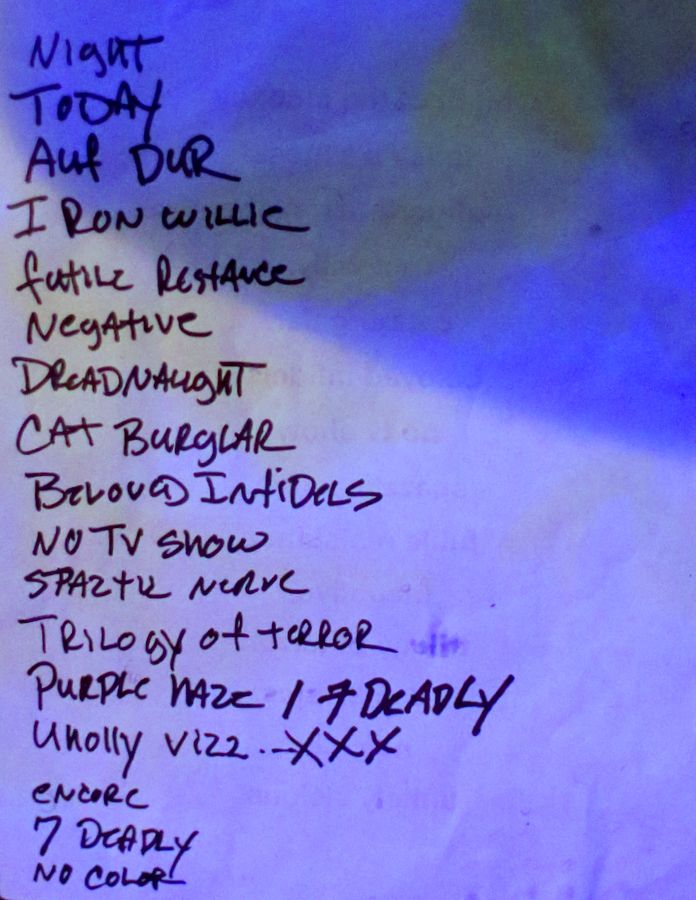 Night
TODAY
Auf DUR
IRON WILLIE
futile Restance
Negative
DREADNAUGHT
CAT BURGLAR
Beloved Infidels
NO TV SHOW
SPAZTIC NERVE
TRILOGY of TERROR
PURPLE HAZE / 7 DEADLY
Unolly Vizz.-XXX
encore
7 DEADLY
NO COLOR